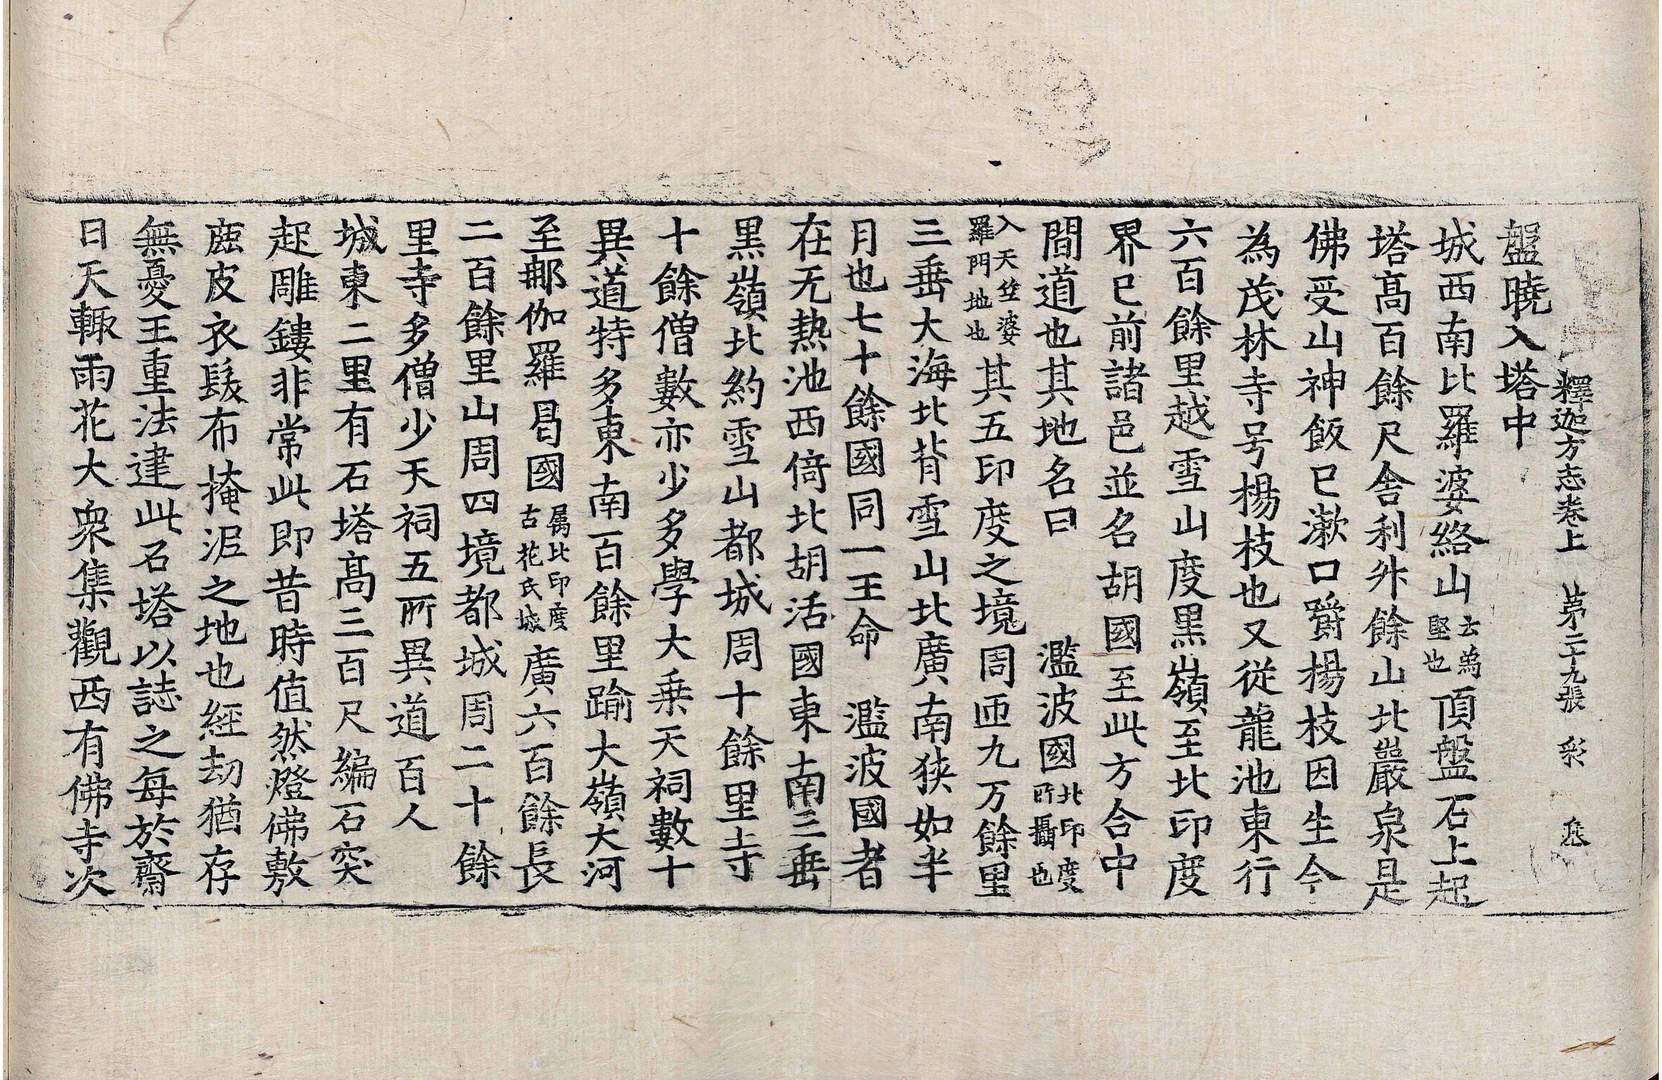 釋迦方志卷上 第二十九張 彩
盤曉入塔中
城西南比羅婆絡山云為堅也頂盤石上起
塔高百餘尺舍利外餘山北巖泉是
佛受山神飯已漱口嚼楊枝因生今
為茂林寺号楊枝也又從龍池東行
六百餘里越雪山度黑嶺至北印度
界已前諸邑並名胡國至此方合中
間道也其地名曰 濫波國北印度所攝也
入天竺婆羅門地也其五印度之境周迊九万餘里
三垂大海北背雪山北廣南狹如半
月也七十餘國同一王命 濫波國者
在无熱池西倚北胡活國東南三垂
黑嶺北約雪山都城周十餘里寺
十餘僧數亦少多學大乗天祠數十
異道特多東南百餘里踰大嶺大河
至那伽羅曷國屬北印度古花氏城廣六百餘長
二百餘里山周四境都城周二十餘
里寺多僧少天祠五所異道百人
城東二里有石塔高三百尺編石突
起雕鏤非常此即昔時值然燈佛敷
鹿皮衣髮布掩泥之地也經劫猶存
無憂王重法建此石塔以誌之每於齋
日天輙雨花大衆集觀西有佛寺次